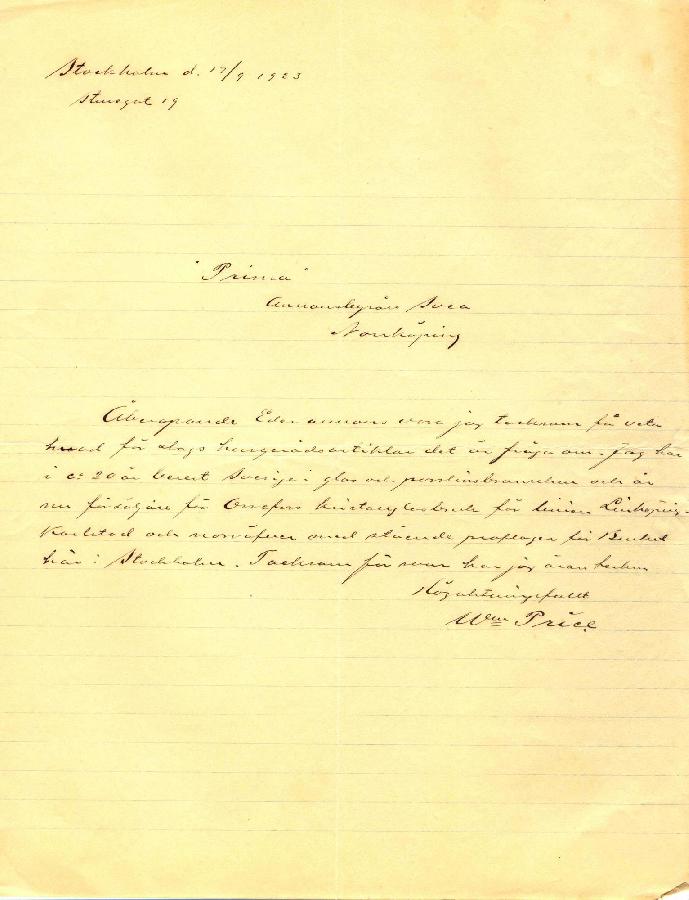 Stockholm d. 17/9 1923
Sturegat 19
"Prima"
Annonsbyrån Svea
Norrköping
Åberopande Eder annons vore jag tacksam få veta
hvad för slags husgerådsartiklar det är fråga om. Jag har
i ca 20 år berest Sverige i glas och porslinsbranschen och är
nu försäljare för Orrefors för linien Linköping-
Karlstad och norröfver med stående proflager
här i Stockholm. Tacksam för svar har jag äran teckna
Högaktningsfullt
Wm Price